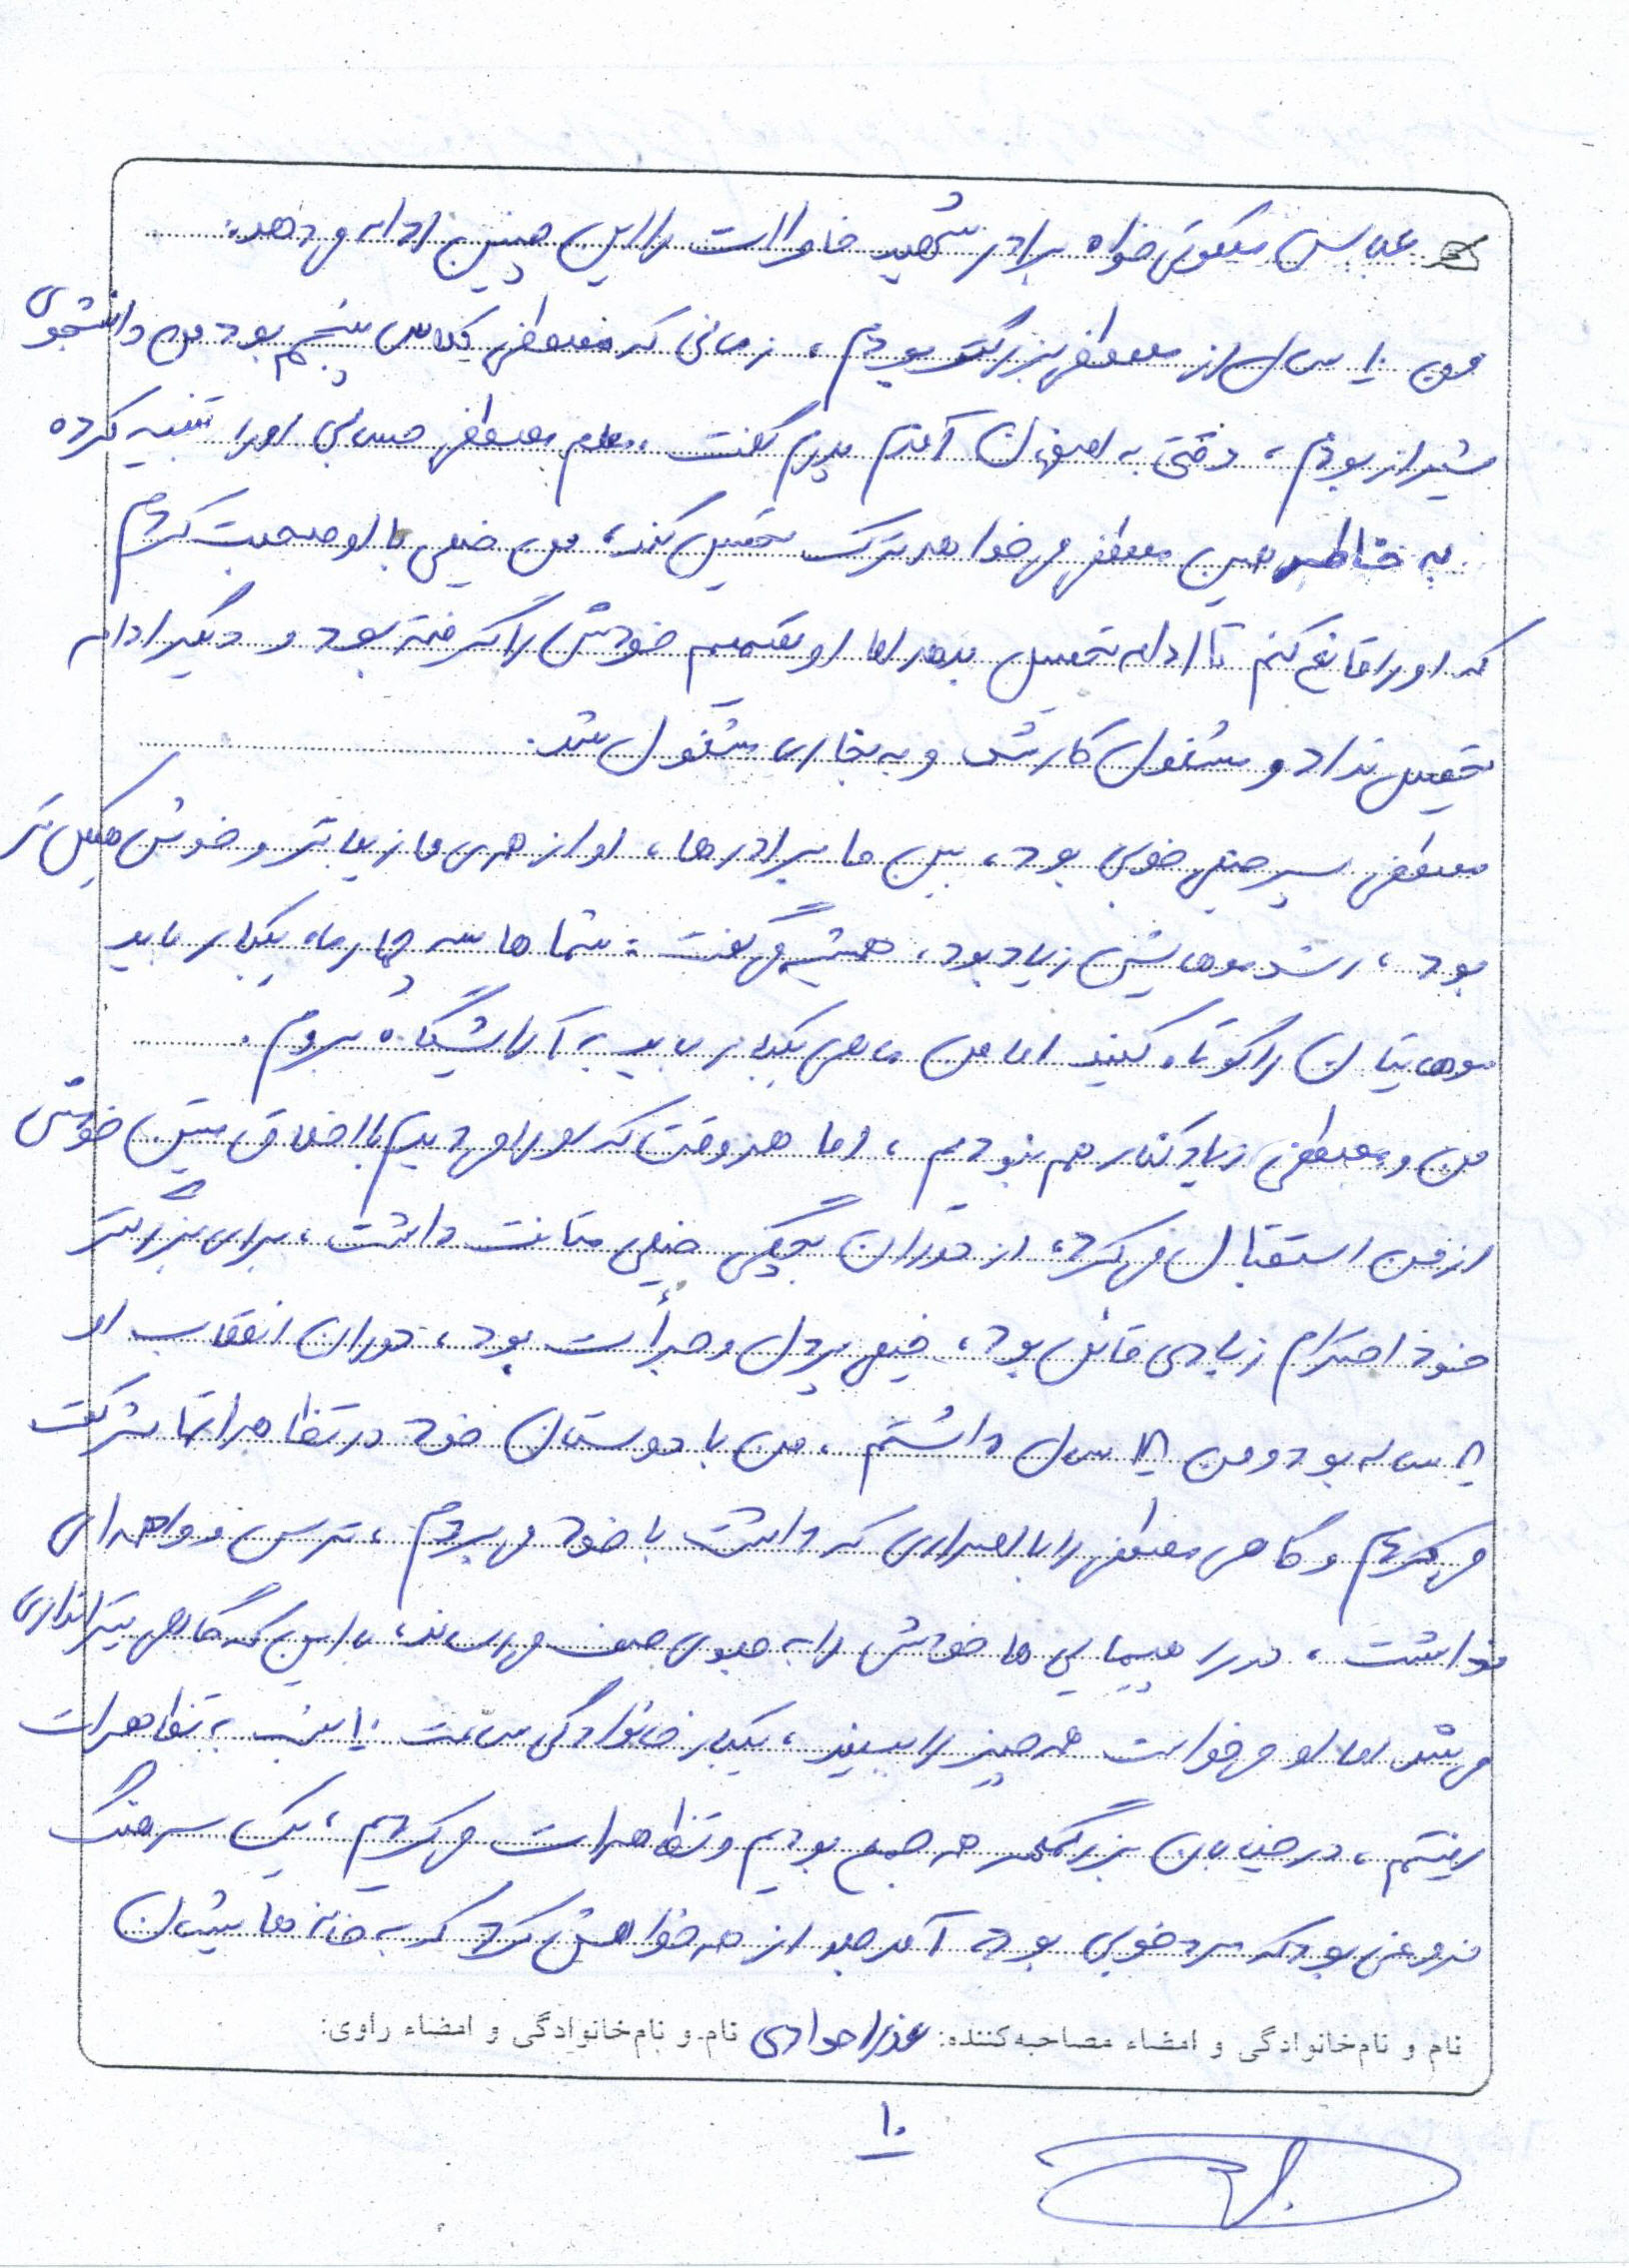 عباس نیکوئی خواه برادر شهید خاطرات را این چنین ادامه می دهد:
من ۱۰ سال از مصطفی بزرگتر بودم، زمانی که مصطفی کلاس پنجم بود من دانشجوی
شیراز بودم، وقتی به اصفهان آمدم پدرم گفت، معلم مصطفی حسابی او را تنبیه کرده
به خاطر همین مصطفی می خواهد ترک تحصیل کند، من خیلی با او صحبت کردم
که او را قانع کنم تا ادامه تحصیل بدهد اما او تصمیم خودش را گرفته بود و دیگر ادامه
تحصیل نداد و مشغول کار شد و به نجاری مشغول شد.
مصطفی پسر خیلی خوبی بود، بین ما برادرها، او از همه ی ما زیباتر و خوش هیکل تر
بود، رشد موهایش زیاد بود، همیشه می گفت: شماها سه چهار ماه یکبار باید
موهایتان را کوتاه کنید اما من ماهی یکبار باید به آرایشگاه بروم.
من و مصطفی زیاد کنار هم نبودیم، اما هر وقت که او را می دیدیم با اخلاق متین خودش
از من استقبال می کرد، از دوران بچگی خیلی متانت داشت، برای بزرگتر
خود احترام زیادی قائل بود، خیلی پردل و جرأت بود، دوران انقلاب او
۸ ساله بود و من ۱۸ سال داشتم، من با دوستان خود در تظاهراتها شرکت
می کردیم و گاهی مصطفی را با اصراری که داشت با خود می بردم، ترس و واهمه ای
نداشت، در راهپیمایی ها خودش را به جلوی صف می رساند، با این که گاهی تیراندازی
می شد اما او می خواست همه چیز را ببیند، یکبار خانوادگی ساعت ۱۰ شب به تظاهرات
رفتیم، در خیابان بزرگمهر همه جمع بودیم و تظاهرات می کردیم، یک سرهنگ
فروغی بود که مرد خوبی بود آمد جلو از همه خواهش کرد که به خانه هایشان
نام و نام خانوادگی و امضاء مصاحبه کننده: عذرا جوادی نام و نام خانوادگی و امضاء راوی:
۱۰